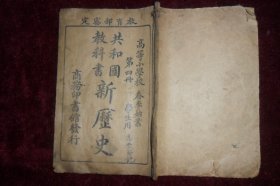 教育部審定
高等小學校
第四冊
春季始業
學生用
共和國
教科書
新歷史
商務印書館發行